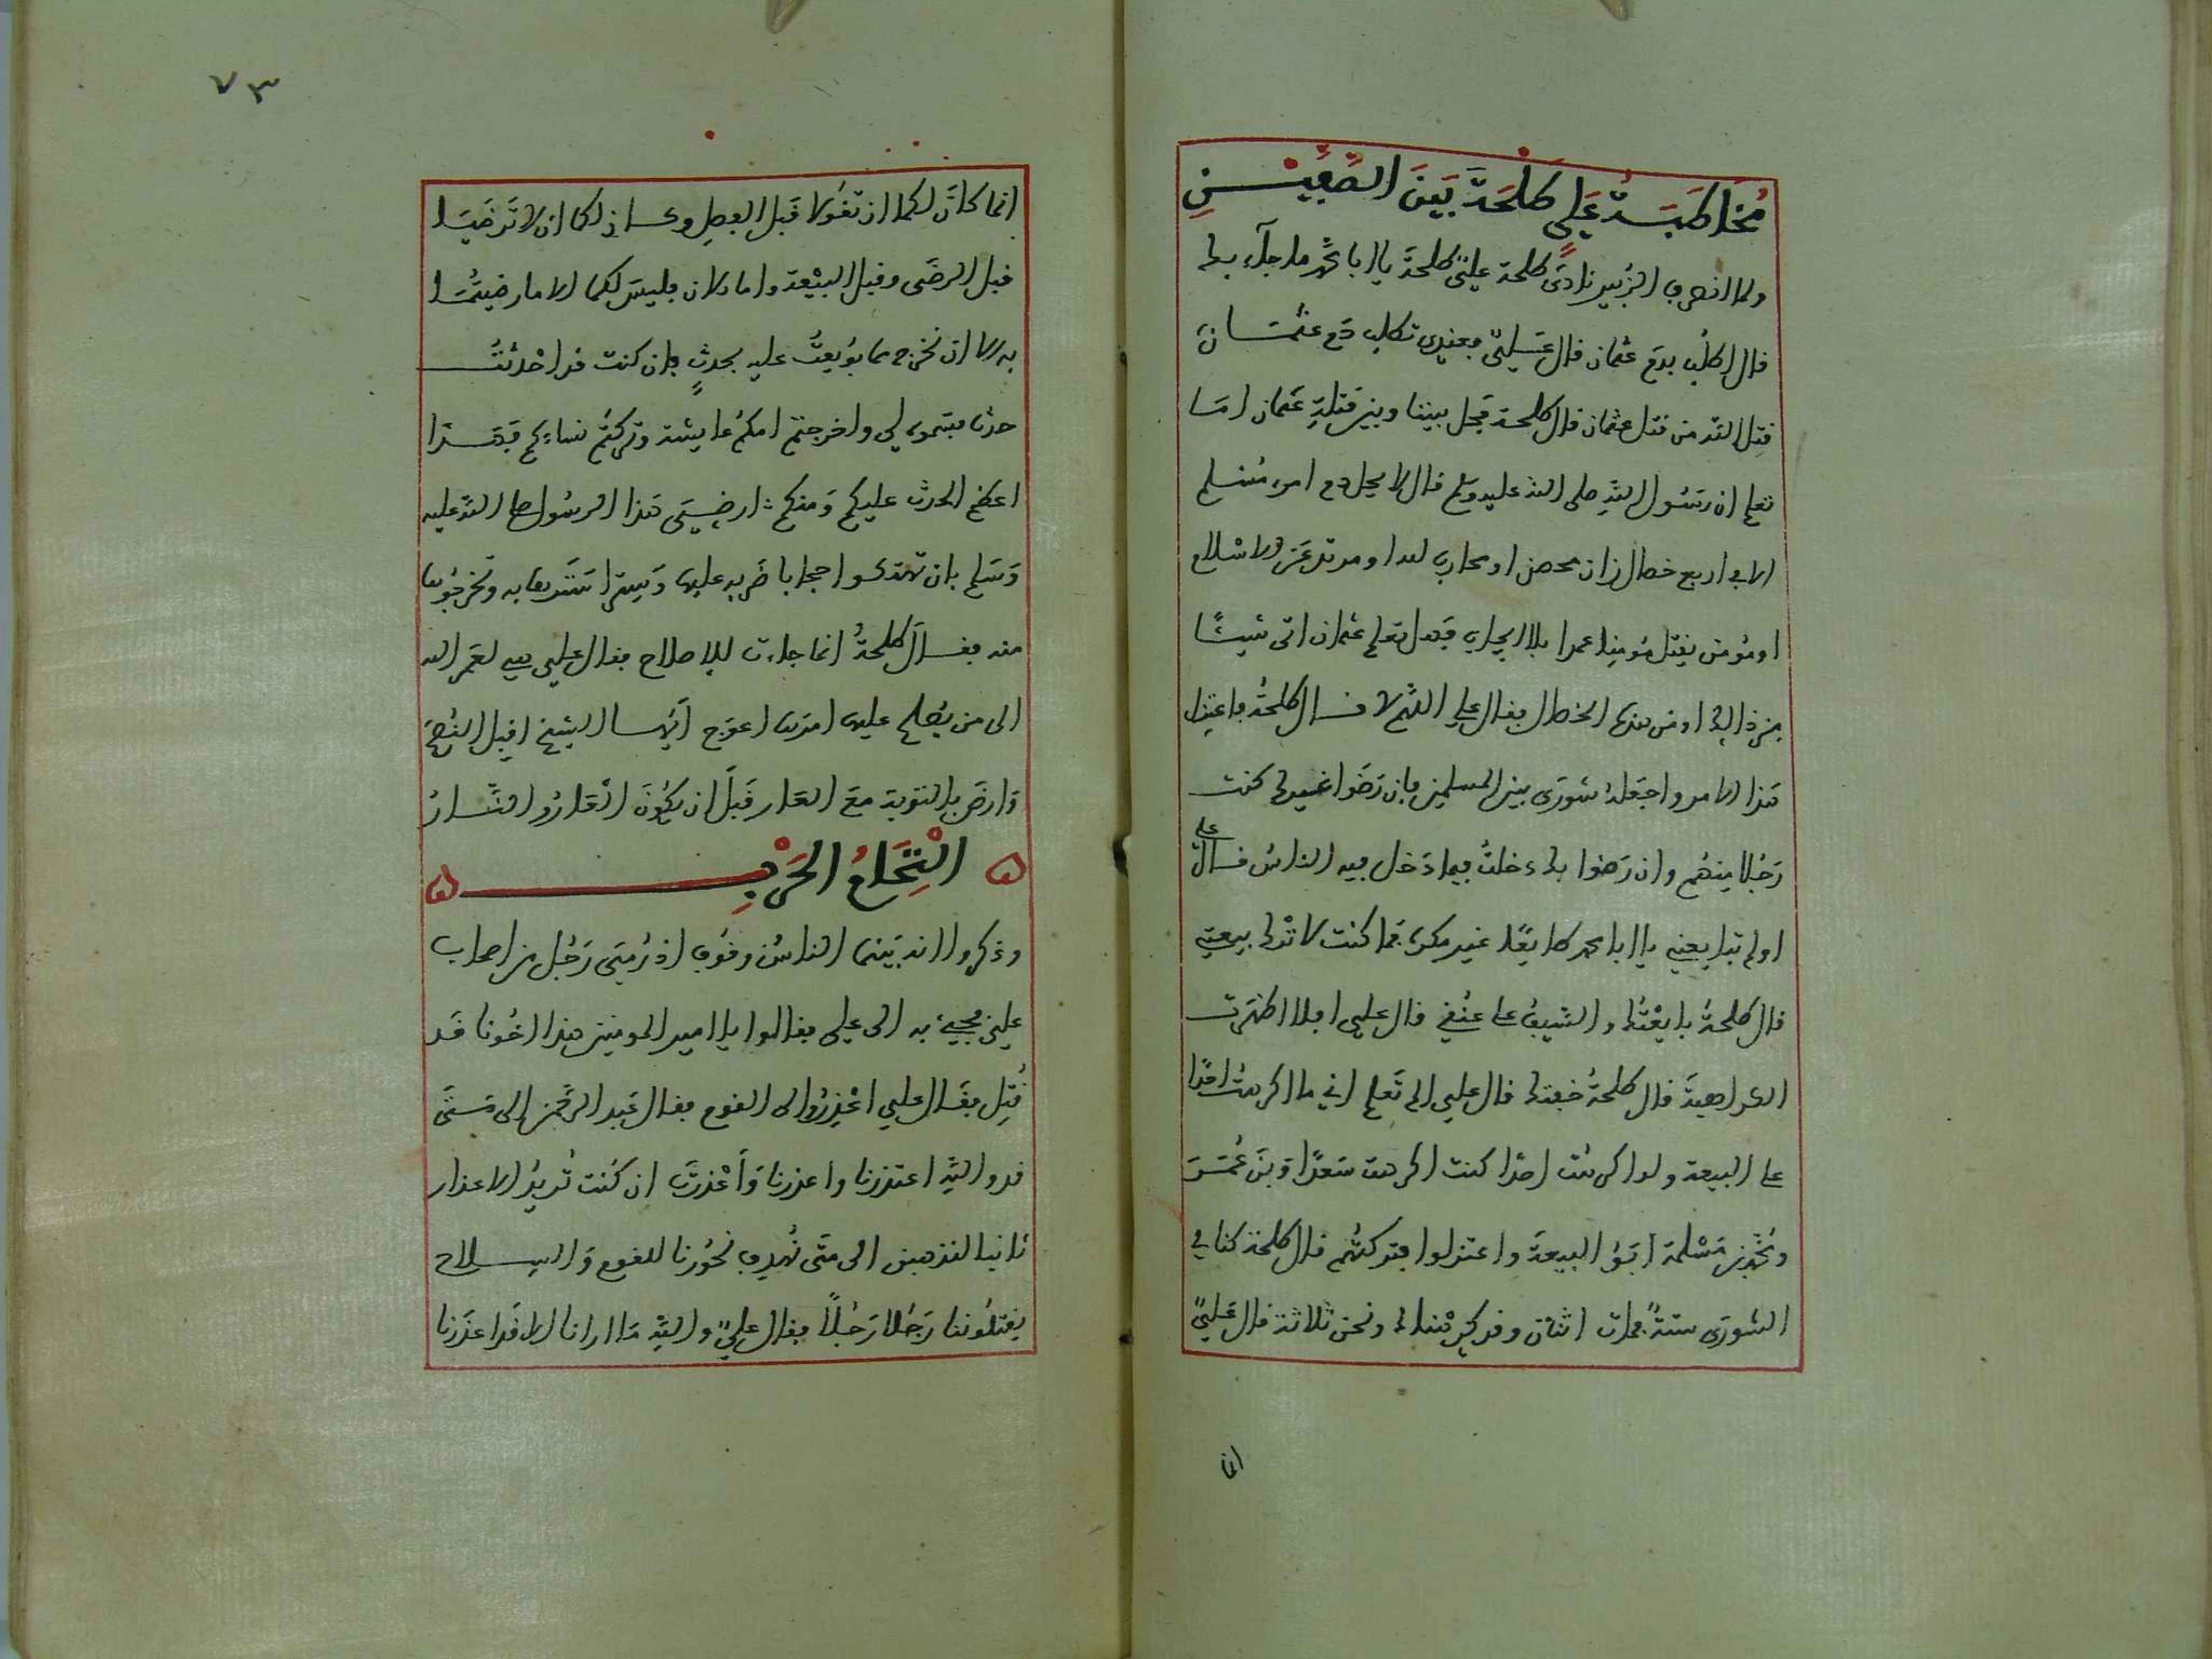 مُخَاطَبَةُ عَلِي طَلْحَةَ بَيْنَ الصَّفَّيْنِ
ولما انصرف الزُّبير نادَى طلحة علِيّ طلحةَ يا ابا محمّد ما جآء بك
قال اطلُب بدَم عثمان قال عَلِيّ فعندى تطلب دَم عثمَان
قَتل الله من قتل عثمان قال طلحة فخل بيننا وبين قتلةِ عثمان امَا
تعلم ان رَسُول اللهِ صلى الله عليه وسلم قال لا يحل دم امرء مُسْلم
الا في اربع خصال زان محصن او محارب لله او مرتد عن الاسْلام
او مُومن يقتل مُومنا عمدا بلا ايجاب فهل تعلم عثمان اتى شيئًا
من ذالك او من هذه الخصال فقال علي اللهُم لا قال طلحةُ فاعتزل
هَذا الامر واجعَلهُ شورَى بين المسلمين فان رَضَوا غيرك كنت
رَجُلا مِنهُم وان رَضوا بك دخلتُ فيما دَخل فيه الناسُ قال علي
اولم تبايعني يا ابا محمد طايعًا غير مكره فما كنت لاترك بيعتي
قال طلحةُ بايعْتُك والسَّيف على عُنُقِي قال علي افلا اظهرت
الكراهيةَ قال طلحةُ خفتك قال علي الم تَعلم اني ما اكرهتُ احَدًا
على البيعة ولو اكرهت احدًا كنت اكرهت سَعدًا وَبنَ عُمَرَ
ومُحمّد بن مَسْلمة ابَوُا البيعةَ واعتزلوا فتركتُهُم قال طلحة كنا في
الشورَى ستةً فمات اثنان وقد كرِهْناك ونحن ثلاثة قال عَلِيّ
انما
٧٣
انما كانَ لكما ان تقُولا قَبل الفعل وكان لكما ان لا تَرضَيَا
قبل الرضَى وقبل البَيْعة واما الان فليسَ لكما الا ما رضيتُمَا
به الا ان نخرج مما بُويعتُ عليه بحدثٍ فان كنت قد احْدثتُ
حدثا فسَموه لي واخرجتم امكُم عايشة وتركتُم نساءكم فهَذا
اعظم الحدث عليكم وَمنكم ارضيتَى هَذا الرسُول صلى اللهُ عليه
وَسَلم بان تهتكوا حجابا ضَربه عليها وَسِترا سَتَرها به وتخرجُوها
منه فقالَ طلحةُ انما جاءت للاصلاح فقال علي هي لعَمر الله
الى من يُصلح عليها امرَها اعوَج اَيُها الشيخ اقبل النُصحَ
وَارضَ بالتوبة معَ العَار قَبلَ ان يكُونَ العَارُ والنَّارُ
الْتِحَامُ الحَرْبِ
وذكروا انه بَينما الناسُ وقُوف اذ رُمِىَ رَجُل من اصحاب
علِي فجئ به الى علي فقالوا يا امير المومنين هذا اخُونا قَد
قُتِل فقَال علي اعْذِرُوا الى القوم فقال عَبد الرحَمن الى مَتَى
قد واللهِ اعتذرنا واعذرنا وَاَعْذرتَ ان كُنت تُريدُ الاعذار
لنذهبن الى متَى نُهدف نحُورنا للقوم وَالسِلاح
يقتلُوننا رَجُلا رَجُلاً فقال علِيّ واللهِ مَا ارانا الا قَد اعذَرنا